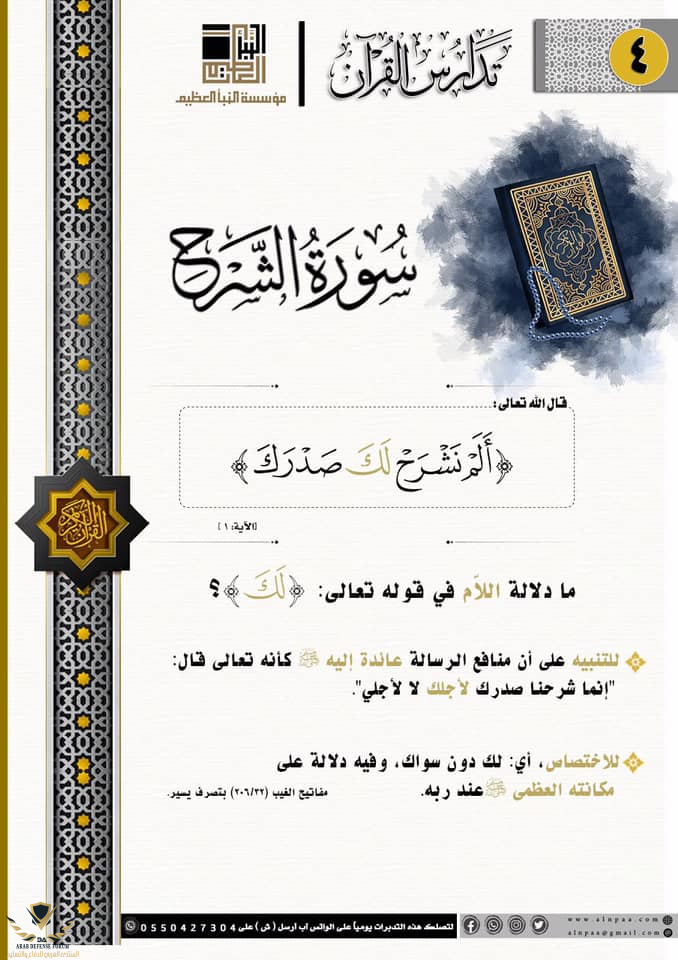 ٤
تدارس القرآن
النبأ العظيم
مؤسسة النبأ العظيم
سُورَةُ الشَّرَحِ
قال الله تعالى:
﴿أَلَمْ نَشْرَحْ لَكَ صَدْرَكَ﴾
[الآية: ١]
القرآن الكريم
ما دلالة اللاّم في قوله تعالى: ﴿لَكَ﴾؟
للتنبيه على أن منافع الرسالة عائدة إليه ﷺ كأنه تعالى قال:
"إنما شرحنا صدرك لأجلك لا لأجلي".
للاختصاص، أي: لك دون سواك، وفيه دلالة على
مكانته العظمى ﷺ عند ربه.
مفاتيح الغيب (٢٠٦/٣٢) بتصرف يسير.
لتصلك هذه التدبرات يومياً على الواتس آب أرسل ( ش ) على 0550427304
www.alnpaa.com
alnpaa@gmail.com
ARAB DEFENSE FORUM
المنتدى العربي للدفاع والتسليح